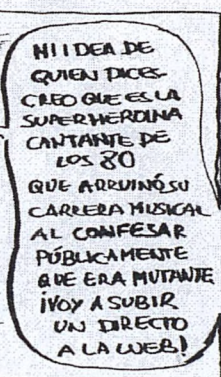 NI IDEA DE
QUIEN DICES.
CREO QUE ES LA
SUPERHEROINA
CANTANTE DE
LOS 80
QUE ARRUINÓ SU
CARRERA MUSICAL
AL CONFESAR
PÚBLICAMENTE
QUE ERA MUTANTE
¡VOY A SUBIR
UN DIRECTO
A LA WEB!